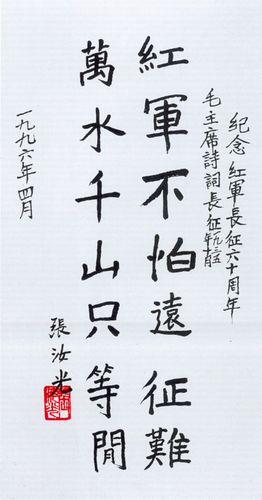 紀念 紅軍長征六十周年
毛主席詩詞長征
紅軍不怕遠征難
萬水千山只等閒
張汝光
一九九六年四月